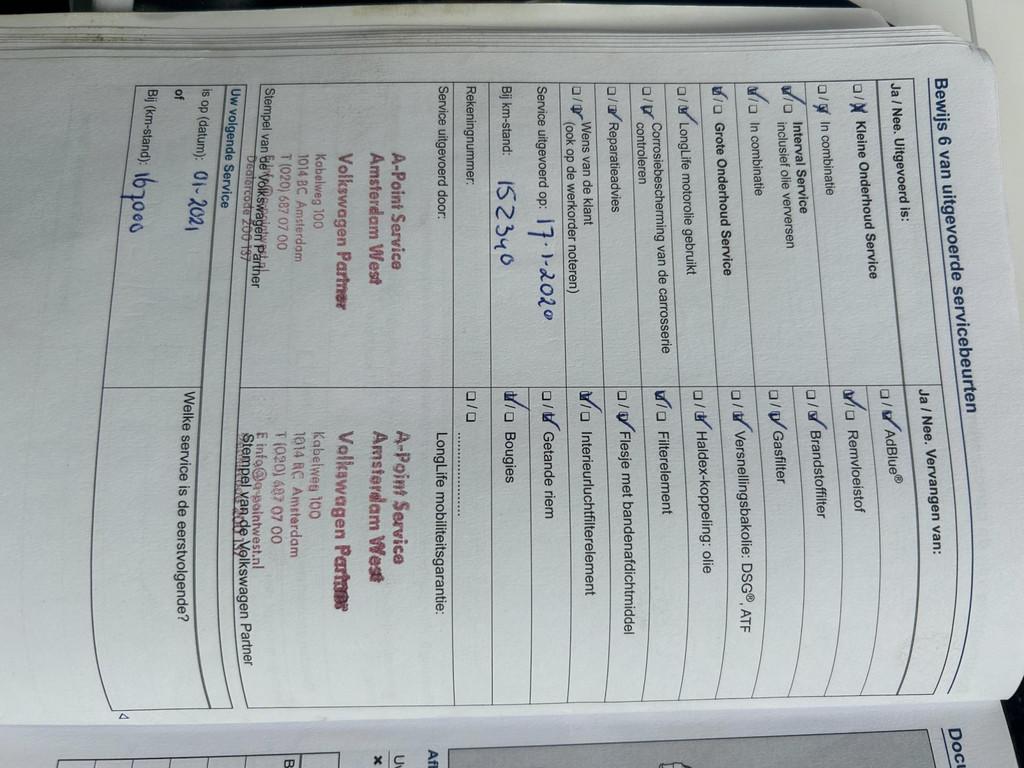 Bewijs 6 van uitgevoerde servicebeurten
Ja / Nee. Uitgevoerd is:
Kleine Onderhoud Service
In combinatie
Interval Service
inclusief olie verversen
In combinatie
Grote Onderhoud Service
LongLife motorolie gebruikt
Corrosiebescherming van de carrosserie
controleren
Reparatieadvies
Wens van de klant
(ook op de werkorder noteren)
Service uitgevoerd op: 17-1-2020
Bij km-stand: 152340
Rekeningnummer:
Service uitgevoerd door:
A-Point Service
Amsterdam West
Volkswagen Partner
Kabelweg 100
1014 BC Amsterdam
T (020) 687 07 00
Stempel van de Volkswagen Partner
Dealercode 200 187
Ja / Nee. Vervangen van:
AdBlue®
Remvloeistof
Brandstoffilter
Gasfilter
Versnellingsbakolie: DSG®, ATF
Haldex-koppeling: olie
Filterelement
Flesje met bandenafdichtmiddel
Interieurluchtfilterelement
Getande riem
Bougies
LongLife mobiliteitsgarantie:
A-Point Service
Amsterdam West
Volkswagen Partner
Kabelweg 100
1014 BC Amsterdam
T (020) 687 07 00
E info@a-pointwest.nl
Stempel van de Volkswagen Partner
Uw volgende Service
is op (datum): 01-2021
of
Bij (km-stand): 167000
Welke service is de eerstvolgende?